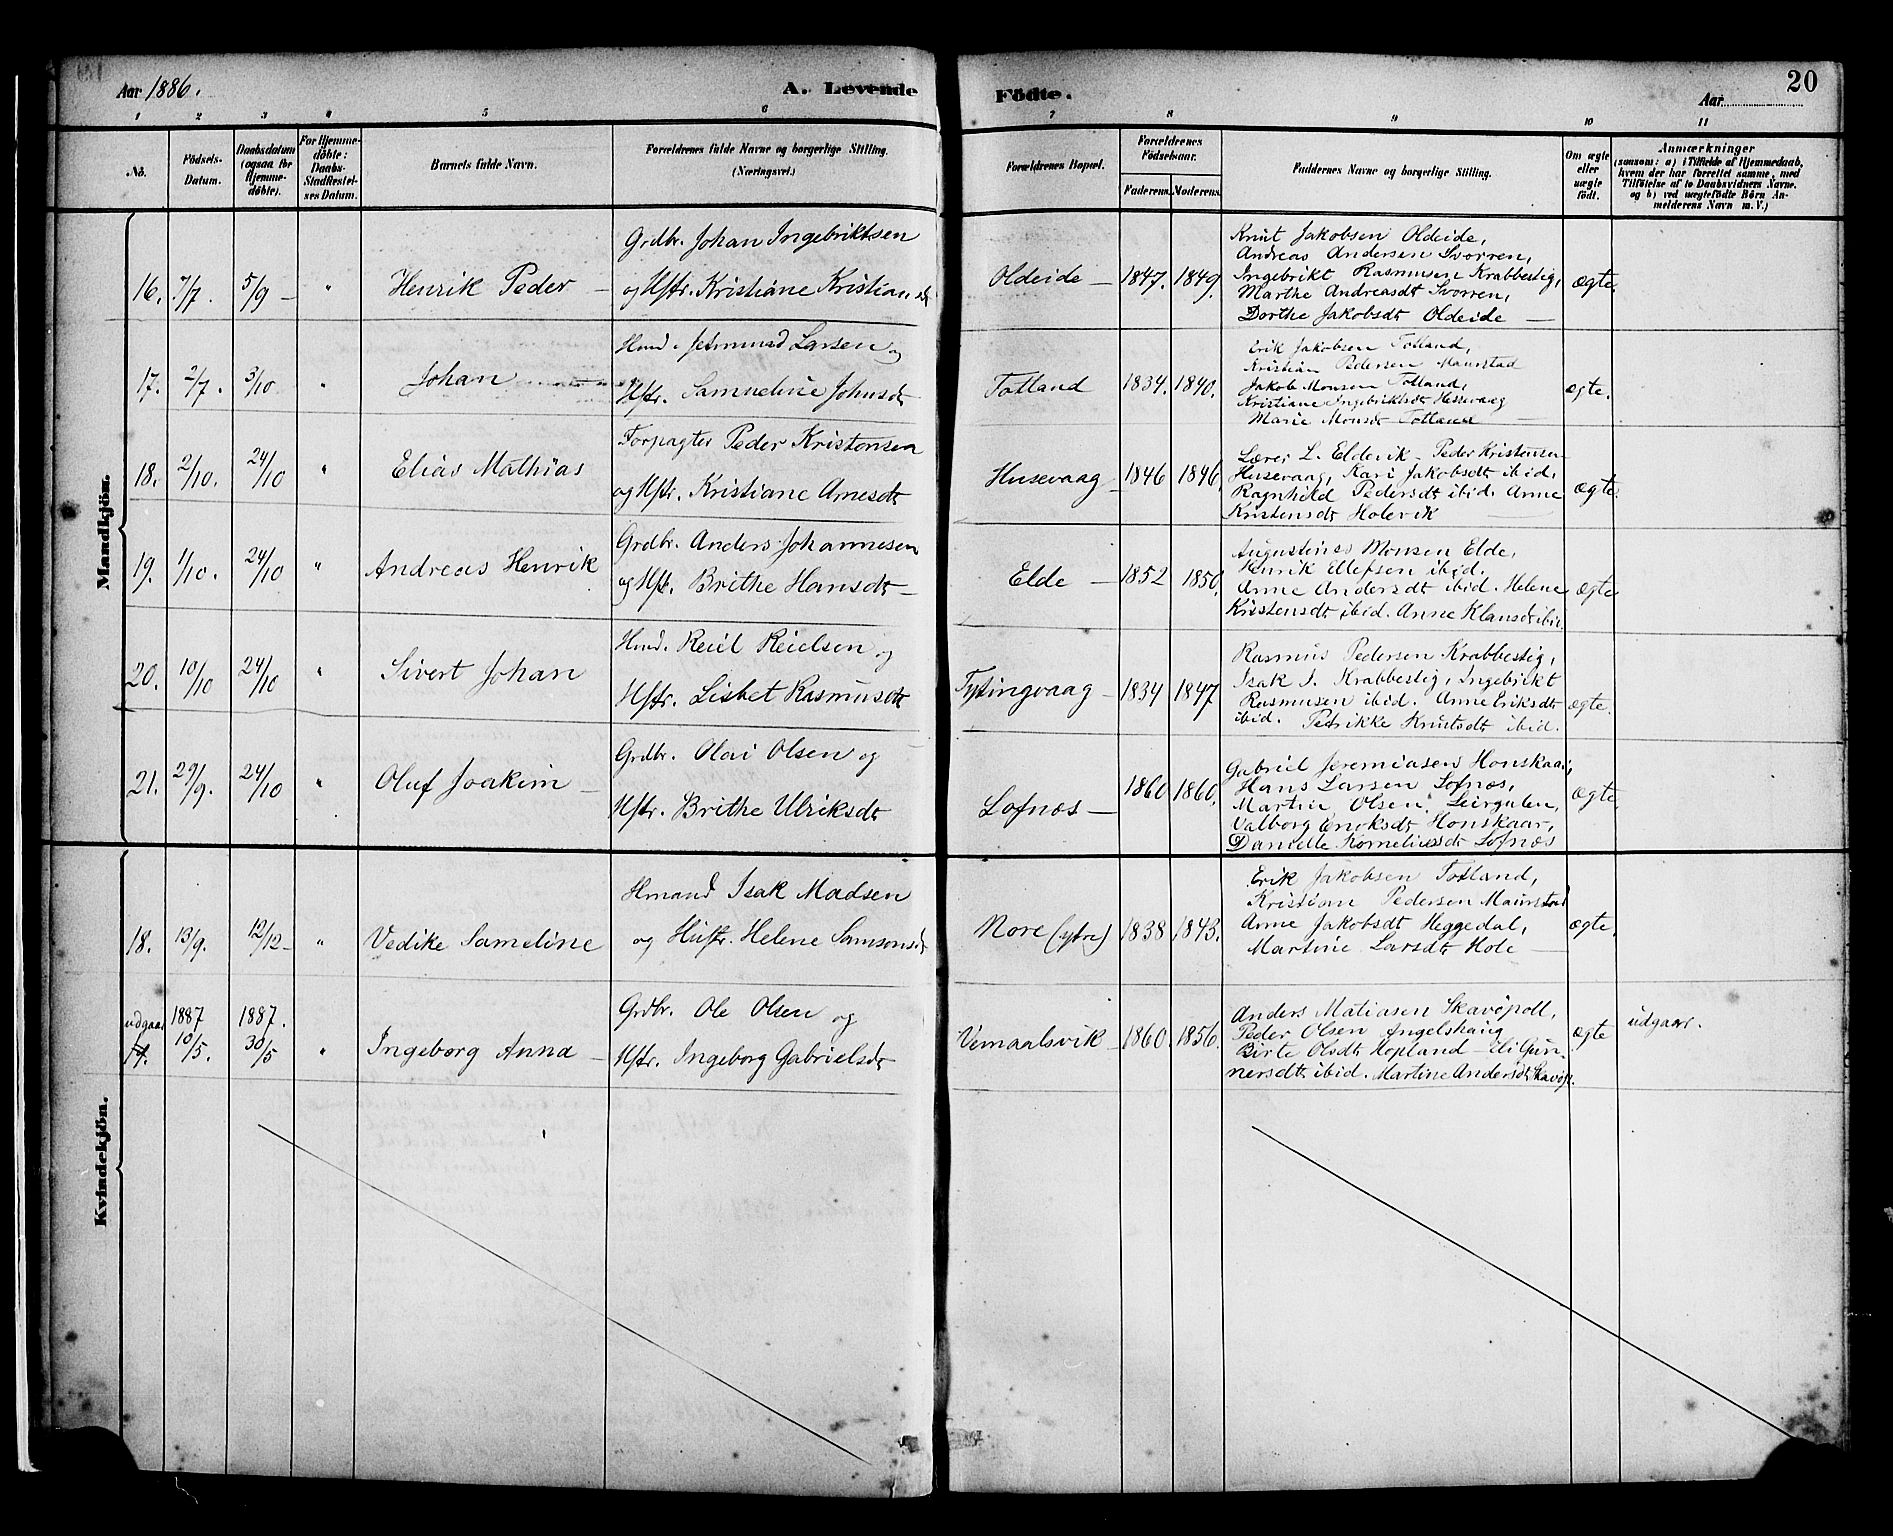 Aar 1886.
A. Levende Födte.
Aar
20
1 2 3 4 5 6 7 8 9 10 11
No.
Födsels-Datum.
Daabsdatum (ogsaa for Hjemme-döbte).
For Hjemme-döbte: Daabs-Stadfæstel-ses Datum.
Barnets fulde Navn.
Forældrenes fulde Navne og borgerlige Stilling.
(Næringsvei.)
Forældrenes Bopæl.
Forældrenes Födselsaar.
Faderens. Moderens.
Faddernes Navne og borgerlige Stilling.
Om ægte eller uægte födt.
Anmærkninger
(saasom: a) i Tilfælde af Hjemmedaab,
hvem der har forrettet samme, med
Tilföielse af to Daabsvidners Navne,
og b) ved uægtefödte Börn An-
melderens Navn m. V.)
Mandkjön.
16. 7/7. 5/9 — " Henrik Peder —
Grdbr. Johan Ingebriktsen
og Hstr. Kristiane Kristiansdt
Oldeide — 1847. 1849.
Knut Jakobsen Oldeide,
Andreas Andersen Svorren,
Ingebrikt Rasmusen Krabbestig,
Marthe Andreasdt Svorren,
Dorthe Jakobsdt Oldeide —
ægte.
17. 2/7. 3/10 " Johan
Hmd. Jetmund Larsen og
Hstr. Samueline Johnsdt
Totland 1834. 1840.
Erik Jakobsen Totland,
Kristian Pedersen Maurstad
Jakob Monsen Totland,
Kristiane Ingebriktsdt Hessevaag
Marie Monsdt Totland —
ægte.
18. 2/10. 24/10 " Elias Mathias
Forpagter Peder Kristensen
og Hstr. Kristiane Arnesdt
Husevaag 1846 1846,
Lærer L. Eldevik - Peder Kristensen
Husevaag, Kari Jakobsdt ibid.
Ragnhild Pedersdt ibid. Anne
Kristensdt Holevik —
ægte.
19. 1/10. 24/10 " Andreas Henrik
Grdbr. Anders Johannesen
og Hstr. Brithe Hansdt —
Elde — 1852 1850,
Augustines Monsen Elde,
Henrik Ellefsen ibid.
Anne Andersdt ibid. Helene
Kristensdt ibid. Anne Klausdt ibid.
ægte
20. 10/10 24/10 " Sivert Johan
Hmd. Reiel Reielsen og
Hstr. Lisbet Rasmusdt
Tytingvaag — 1834 1847
Rasmus Pedersen Krabbestig,
Isak J. Krabbestig, Ingebrikt
Rasmusen ibid. Anne Eriksdt
ibid. Petrikke Knutsdt ibid.
ægte.
21. 29/9. 24/10 " Oluf Joakim —
Grdbr. Olai Olsen og
Hstr. Brithe Ulriksdt
Lofnæs — 1860 1860,
Gabriel Jeremiasen Honskaar,
Hans Larsen Lofnæs,
Martin Olsen Leirgulen,
Valborg Eriksdt Honskaar,
Danielle Korneliusdt Lofnæs
ægte,
Kvindekjön.
18. 13/9. 12/12 — " Vedike Sameline
Hmand Isak Madsen
og Hustr. Helene Samsonsdt
Nore (ytre) 1838 1843.
Erik Jakobsen Totland,
Kristian Pedersen Maurstad
Anne Jakobsdt Heggedal,
Martine Larsdt Hole —
ægte,
udgaar
17. 1887 10/5. 1887. 30/5 " Ingeborg Anna —
Grdbr. Ole Olsen og
Hstr. Ingeborg Gabrielsdt
Vemaalsvik 1860. 1856.
Anders Matiasen Skavöpoll,
Peder Olsen Ingelshaug
Birte Olsdt Hopland - Eli Gun-
nersdt ibid. Martine Andersdt Skavöp.
ægte
udgaar.